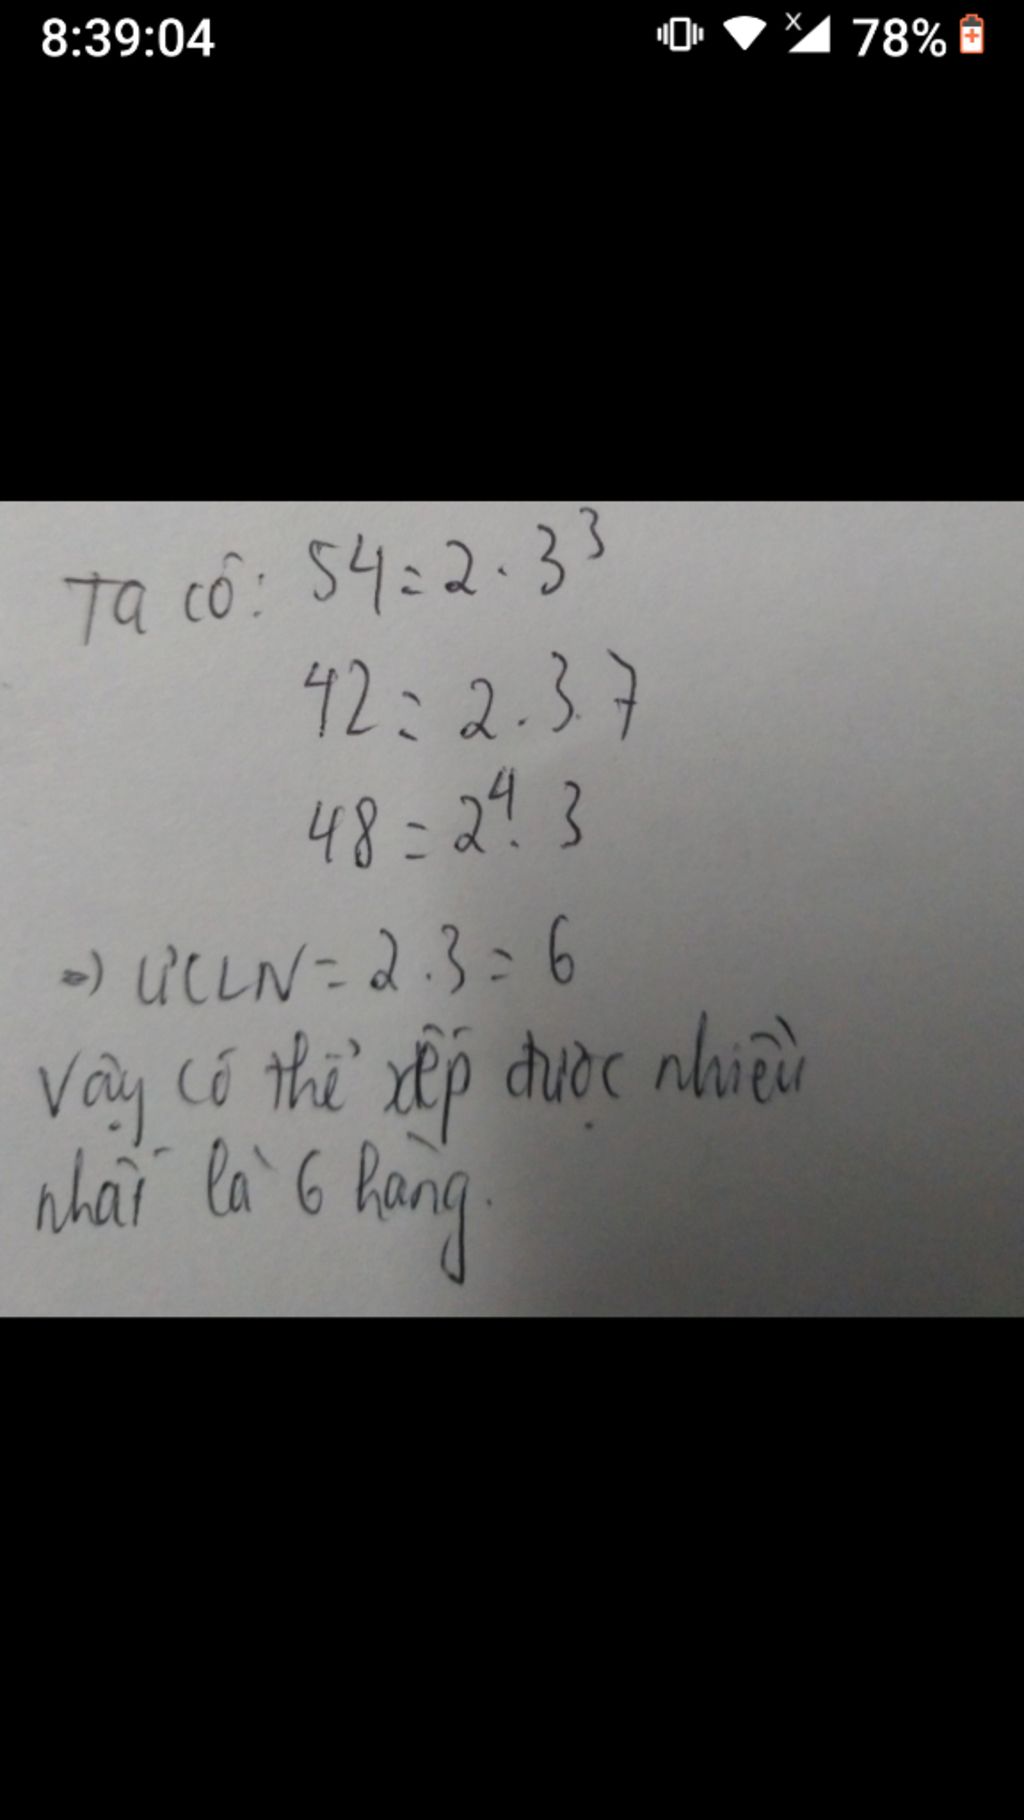 8:39:04 78%
Ta có: 54 = 2 . 3³
42 = 2 . 3 . 7
48 = 2⁴ . 3
=> ƯCLN = 2 . 3 = 6
Vậy có thể xếp được nhiều
nhất là 6 hàng.